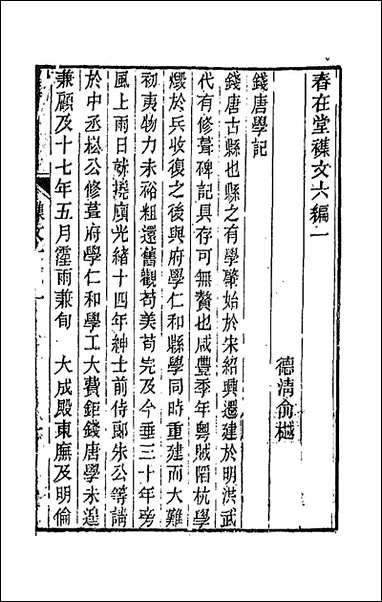 春在堂襍文六編一
德淸俞樾
錢唐學記
錢唐古縣也縣之有學肇始於宋紹興遷建於明洪武
代有修葺碑記具存可無贅也咸豐季年粵賊陷杭學
燬於兵收復之後與府學仁和縣學同時重建而大難
初夷物力未裕粗還舊觀苟美苟完及今垂三十年旁
風上雨日就撓𢷬光緒十四年紳士前侍郎朱公等請
於中丞崧公修葺府學仁和學工大費鉅錢唐學未遑
兼顧及十七年五月霪雨兼旬　大成殿東廡及明倫
襍文